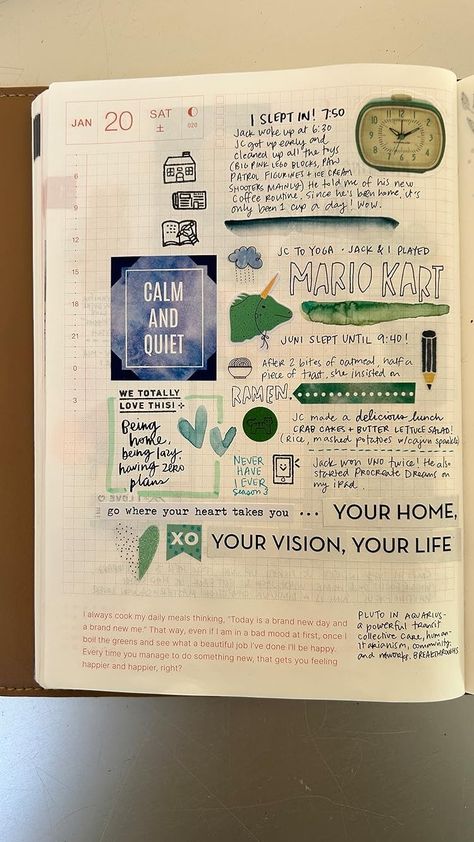 JAN 20 SAT
土
020
I SLEPT IN! 7:50
Jack woke up at 6:30
JC got up early and
cleaned up all the toys
(BIG PINK LEGO BLOCKS, PAW
PATROL FIGURINES + ICE CREAM
SHOOTERS MAINLY) He told me of his new
coffee routine. Since he's been home, it's
only been 1 cup a day! WOW.
6
9
12
15
18
21
0
3
JC TO YOGA · JACK & I PLAYED
MARIO KART
CALM
AND
QUIET
JUNI SLEPT UNTIL 9:40!
After 2 bites of oatmeal, half a
piece of toast, she insisted on
RAMEN.
WE TOTALLY
LOVE THIS! +
Being
home,
being lazy,
having zero
plans
JC made a delicious lunch
CRAB CAKES + BUTTER LETTUCE SALAD!
(Rice, mashed potatoes w/cajun sparkle)
NEVER
HAVE
I EVER
Season 3
Jack won UNO twice! He also
started PROCREATE DREAMS on
my iPad.
go where your heart takes you ... YOUR HOME,
XO YOUR VISION, YOUR LIFE
I always cook my daily meals thinking, "Today is a brand new day and
a brand new me." That way, even if I am in a bad mood at first, once I
boil the greens and see what a beautiful job I've done I'll be happy.
Every time you manage to do something new, that gets you feeling
happier and happier, right?
PLUTO IN AQUARIUS-
a powerful transit
collective care, human-
itarianism, community
and networks. BREAKTHROUGHS